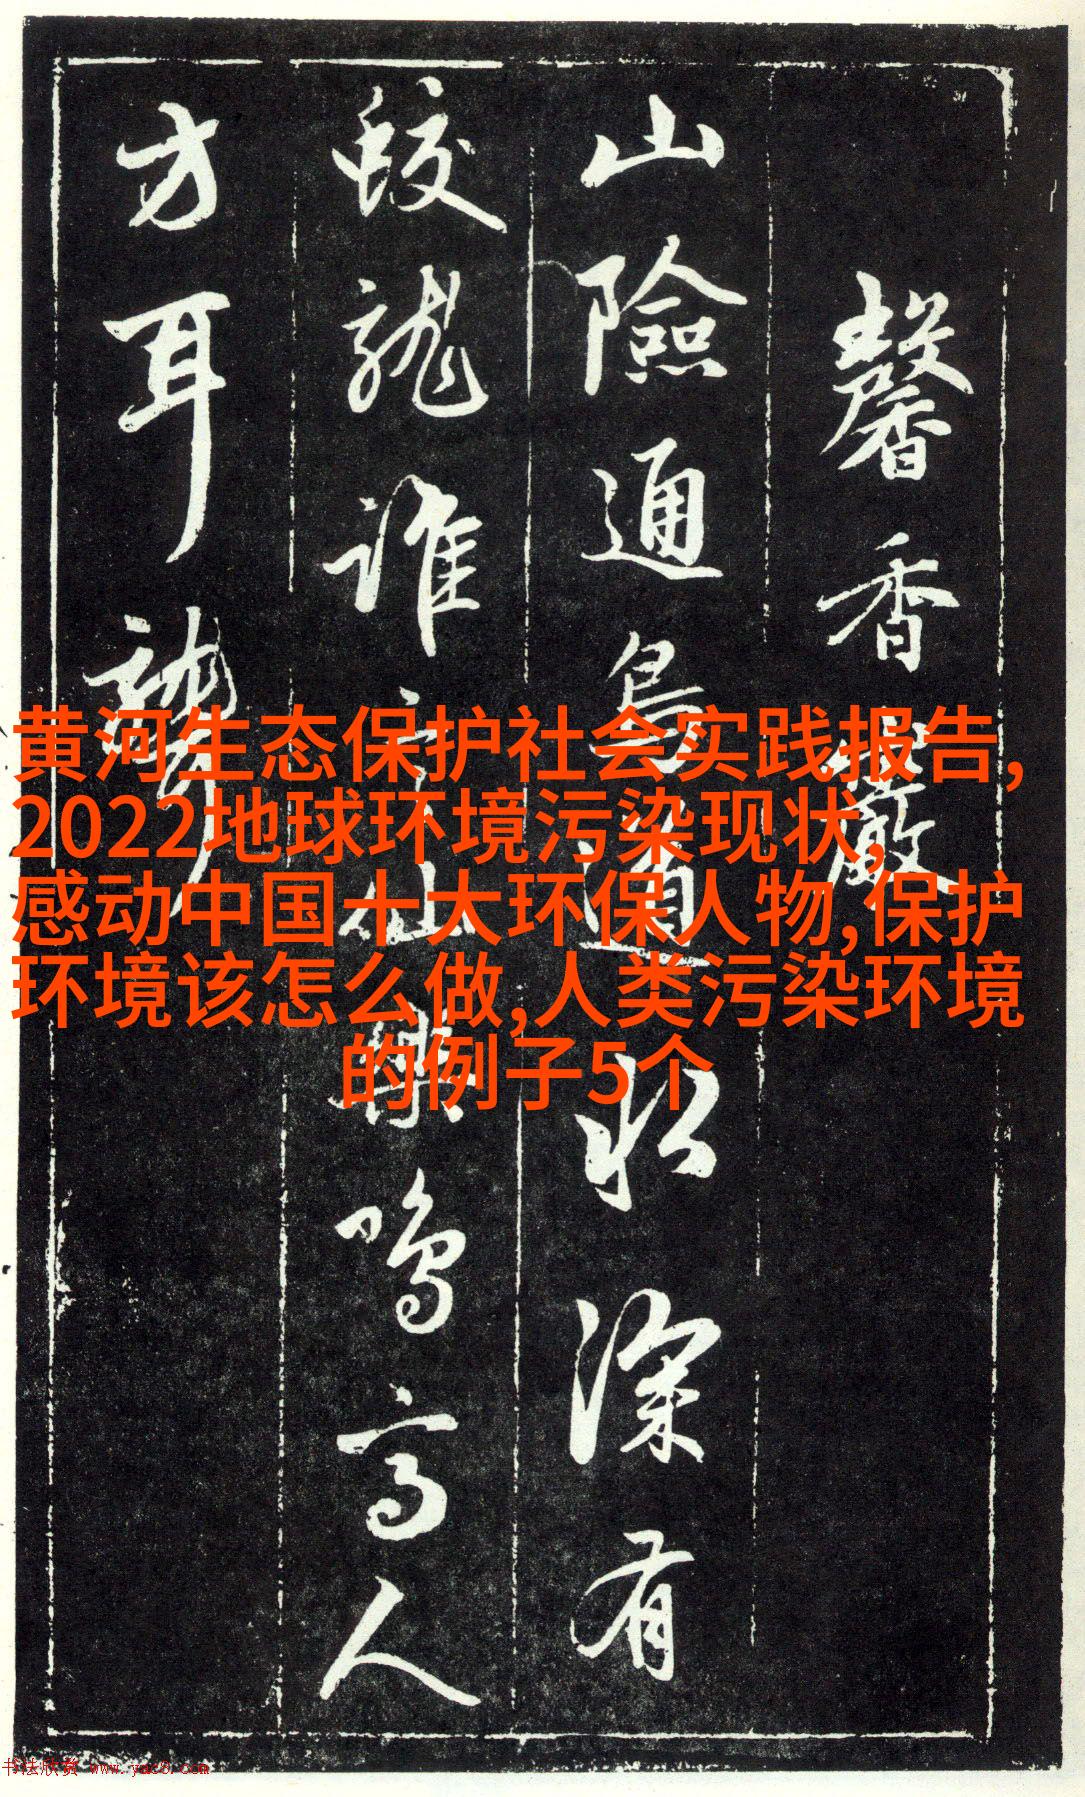 馨香
山險通鳥道水深有
蛟龍誰鳴高人
方耳聾
黄河生态保护社会实践报告,
2022地球环境污染现状,
感动中国十大环保人物,保护
环境该怎么做,人类污染环境
的例子5个
书法欣赏 www.yac8.com